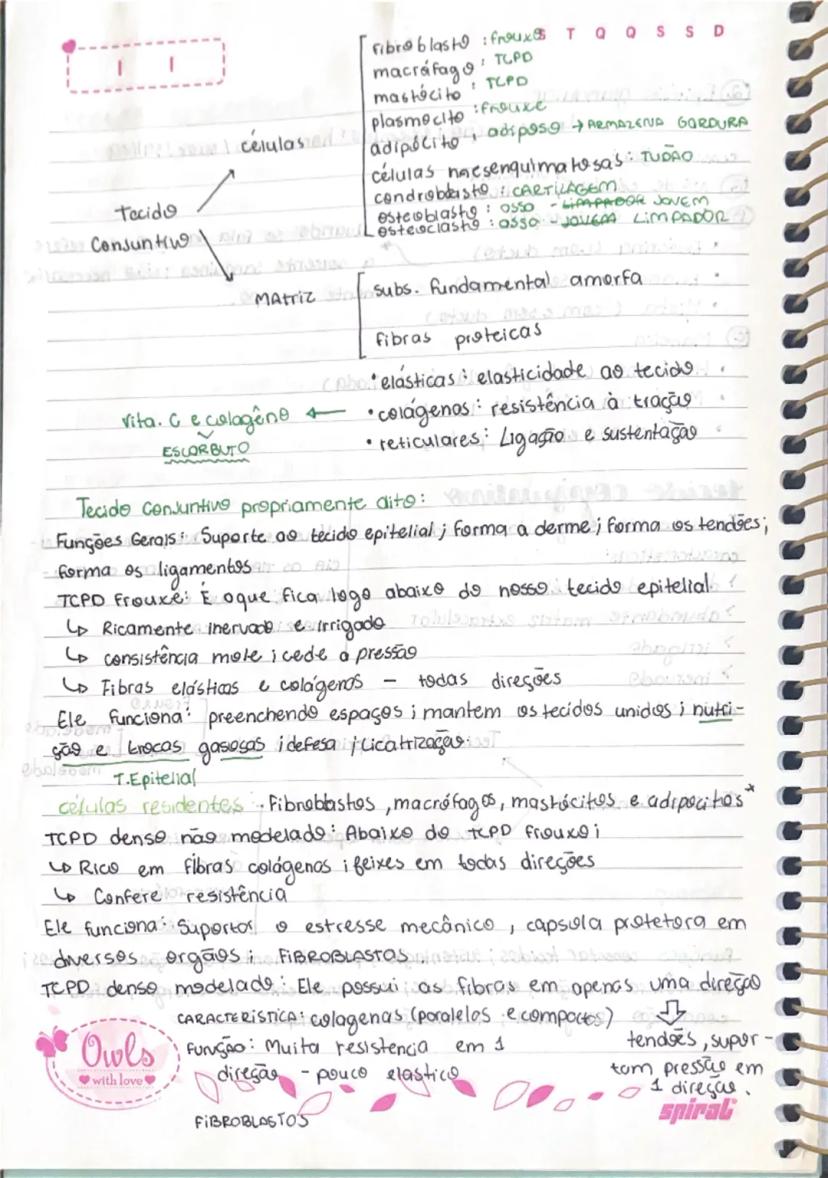 S T Q Q S S D
fibroblasto : frouxo
macrófago : TCPD
mastócito : TCPD
plasmocito : frouxe
adipócito : adiposo → ARMAZENA GORDURA
células mesenquimatosas : TUDÃO
condroblasto : CARTILAGEM
osteoblasto : osso - LIMPADOR JOVEM
osteoclasto : osso - JOVEM LIMPADOR
células
Tecido
Conjuntivo
MATRIZ
subs. fundamental amorfa
fibras proteicas
• elásticas : elasticidade ao tecido
Vita. C e colagêno ← • colágenos : resistência à tração
ESCORBUTO
• reticulares : Ligação e sustentação
Tecido Conjuntivo propriamente dito :
Funções Gerais : Suporte ao tecido epitelial ; forma a derme ; forma os tendões ;
forma os ligamentos
TCPD Frouxe : É oque fica logo abaixo do nosso tecido epitelial
↳ Ricamente inervado e irrigado
↳ consistência mole ; cede a pressão
↳ Fibras elásticas e colágenos - todas direções
Ele funciona : preenchendo espaços ; mantem os tecidos unidos ; nutri-
ção e trocas gasosas ; defesa ; cicatrização.
T.Epitelial
células residentes . Fibroblastos , macrófagos, mastócitos e adipocitos*
TCPD denso não modelado : Abaixo do TCPD frouxo ;
↳ Rico em fibras colágenos ; feixes em todas direções
↳ Confere resistência
Ele funciona : Suportar o estresse mecânico , capsula protetora em
diversos orgãos ; FIBROBLASTOS .
TCPD denso modelado : Ele possui as fibras em apenas uma direção
CARACTERÍSTICA : colagenas (paralelos e compactos)
tendões , supor-
Função : Muita resistencia em 1
tam pressão em
direção - pouco elastico
1 direção .
FIBROBLASTOS
Owls
with love
spiral